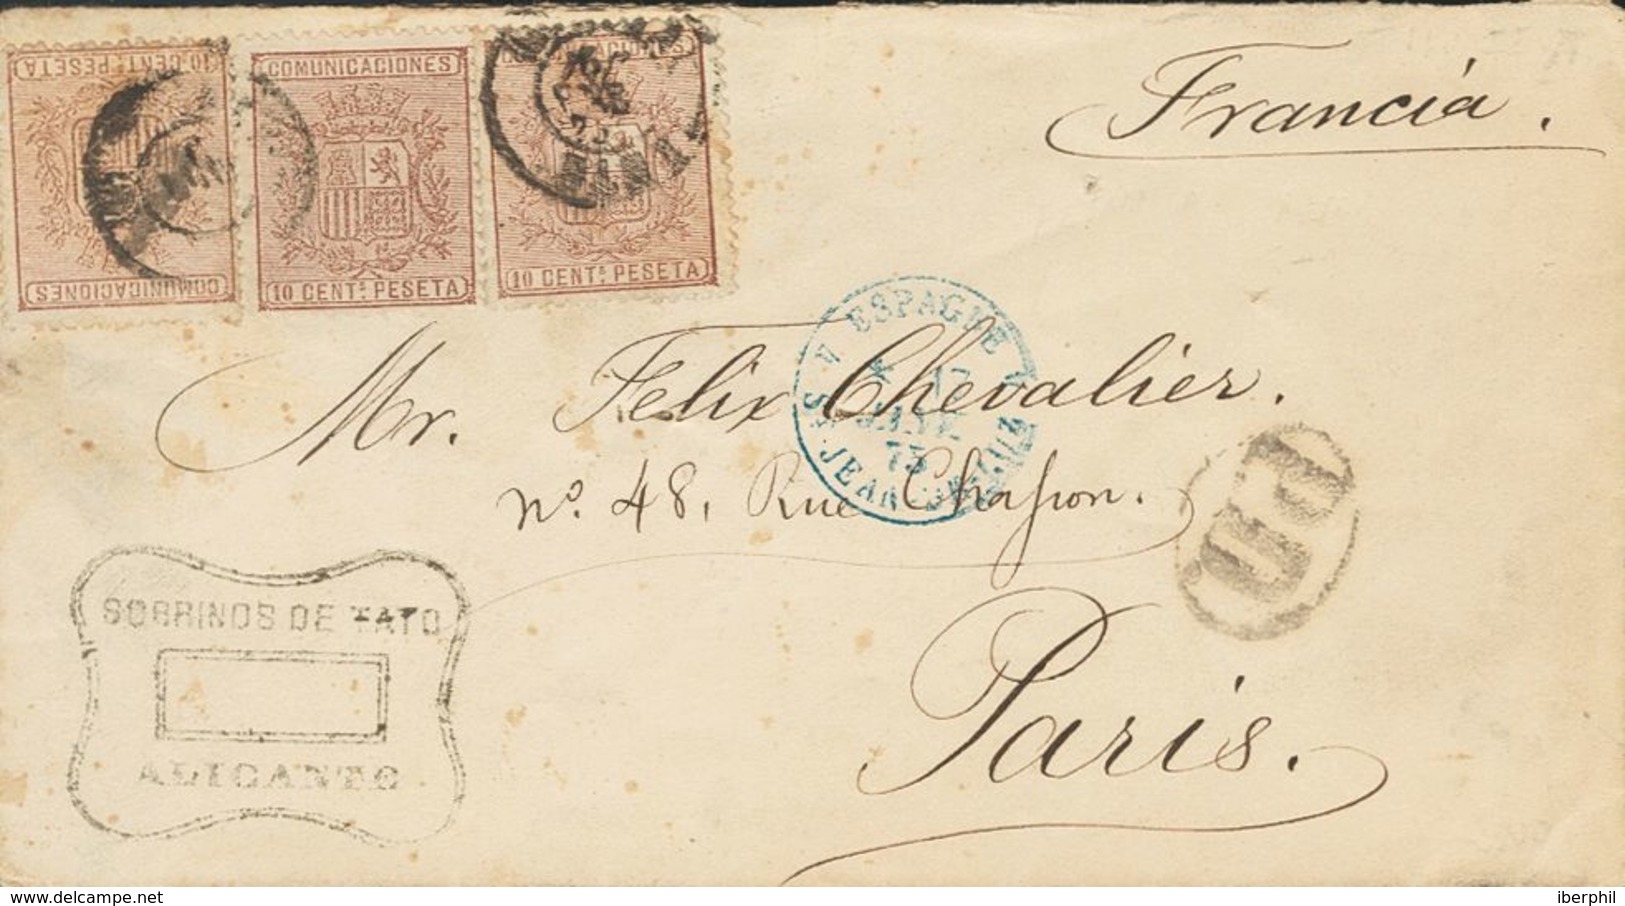 10 CENT. PESETA
COMUNICACIONES
COMUNICACIONES
10 CENT.s PESETA
COMUNICACIONES
10 CENT.s PESETA
Francia.
ESPAGNE
17
JANV
75
ST JEAN-DE-LUZ
Mr. Felix Chevalier.
nº. 48, Rue Chapon.
Paris.
PD
SOBRINOS DE TATO
ALICANTE
www.delcampe.net
iberphil